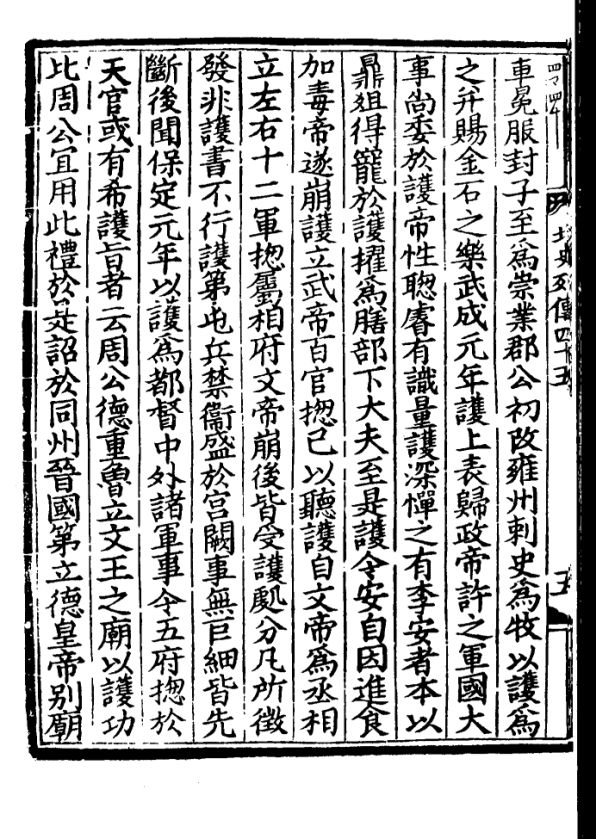 北史列傳四十五
五
車冕服封子至爲崇業郡公初改雍州刺史爲牧以護爲
之并賜金石之樂武成元年護上表歸政帝許之軍國大
事尚委於護帝性聦睿有識量護深憚之有李安者本以
鼎俎得寵於護擢爲膳部下大夫至是護令安自因進食
加毒帝遂崩護立武帝百官揔己以聽護自文帝爲丞相
立左右十二軍揔屬相府文帝崩後皆受護處分凡所徵
發非護書不行護第屯兵禁衞盛於宮闕事無巨細皆先
斷後聞保定元年以護爲都督中外諸軍事令五府揔於
天官或有希護旨者云周公德重魯立文王之廟以護功
比周公宜用此禮於是詔於同州晉國第立德皇帝别廟